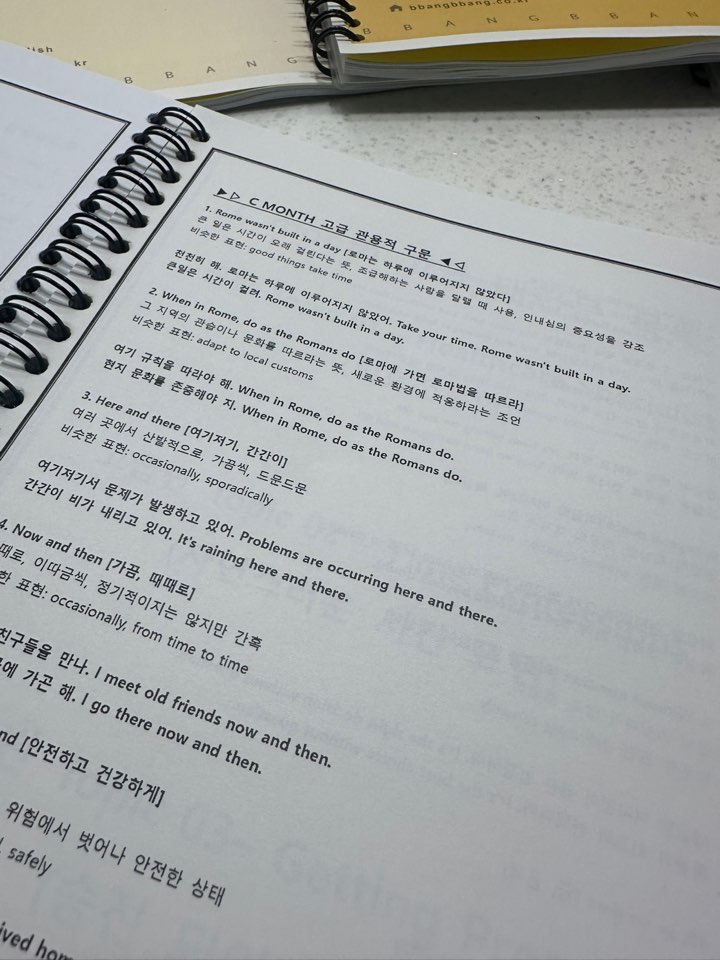 bbangbbang.co.kr
B B A N G B B A N
kr
B B A N G
▶▷ C MONTH 고급 관용적 구문 ◀◁
1. Rome wasn't built in a day [로마는 하루에 이루어지지 않았다]
큰 일은 시간이 오래 걸린다는 뜻, 조급해하는 사람을 달랠 때 사용, 인내심의 중요성을 강조
비슷한 표현: good things take time
천천히 해. 로마는 하루에 이루어지지 않았어. Take your time. Rome wasn't built in a day.
큰일은 시간이 걸려. Rome wasn't built in a day.
2. When in Rome, do as the Romans do [로마에 가면 로마법을 따르라]
그 지역의 관습이나 문화를 따르라는 뜻, 새로운 환경에 적응하라는 조언
비슷한 표현: adapt to local customs
여기 규칙을 따라야 해. When in Rome, do as the Romans do.
현지 문화를 존중해야 지. When in Rome, do as the Romans do.
3. Here and there [여기저기, 간간이]
여러 곳에서 산발적으로, 가끔씩, 드문드문
비슷한 표현: occasionally, sporadically
여기저기서 문제가 발생하고 있어. Problems are occurring here and there.
간간이 비가 내리고 있어. It's raining here and there.
4. Now and then [가끔, 때때로]
때로, 이따금씩, 정기적이지는 않지만 간혹
한 표현: occasionally, from time to time
친구들을 만나. I meet old friends now and then.
에 가곤 해. I go there now and then.
nd [안전하고 건강하게]
위험에서 벗어나 안전한 상태
safely